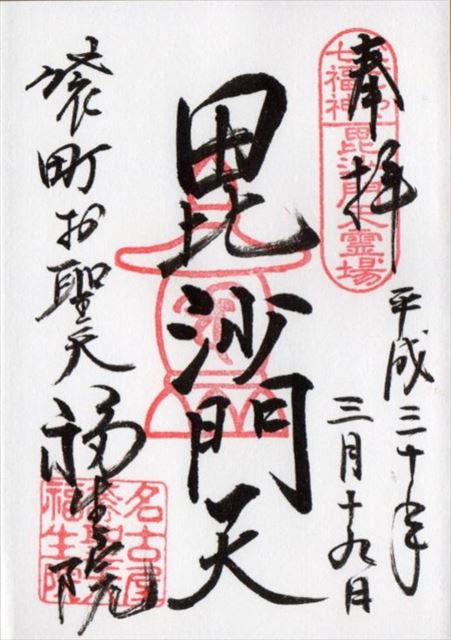 奉拝
七福神
毘沙門天霊場
平成三十年
三月十九日
毘沙門天
袋町お聖天
福生院
名古屋
福生院